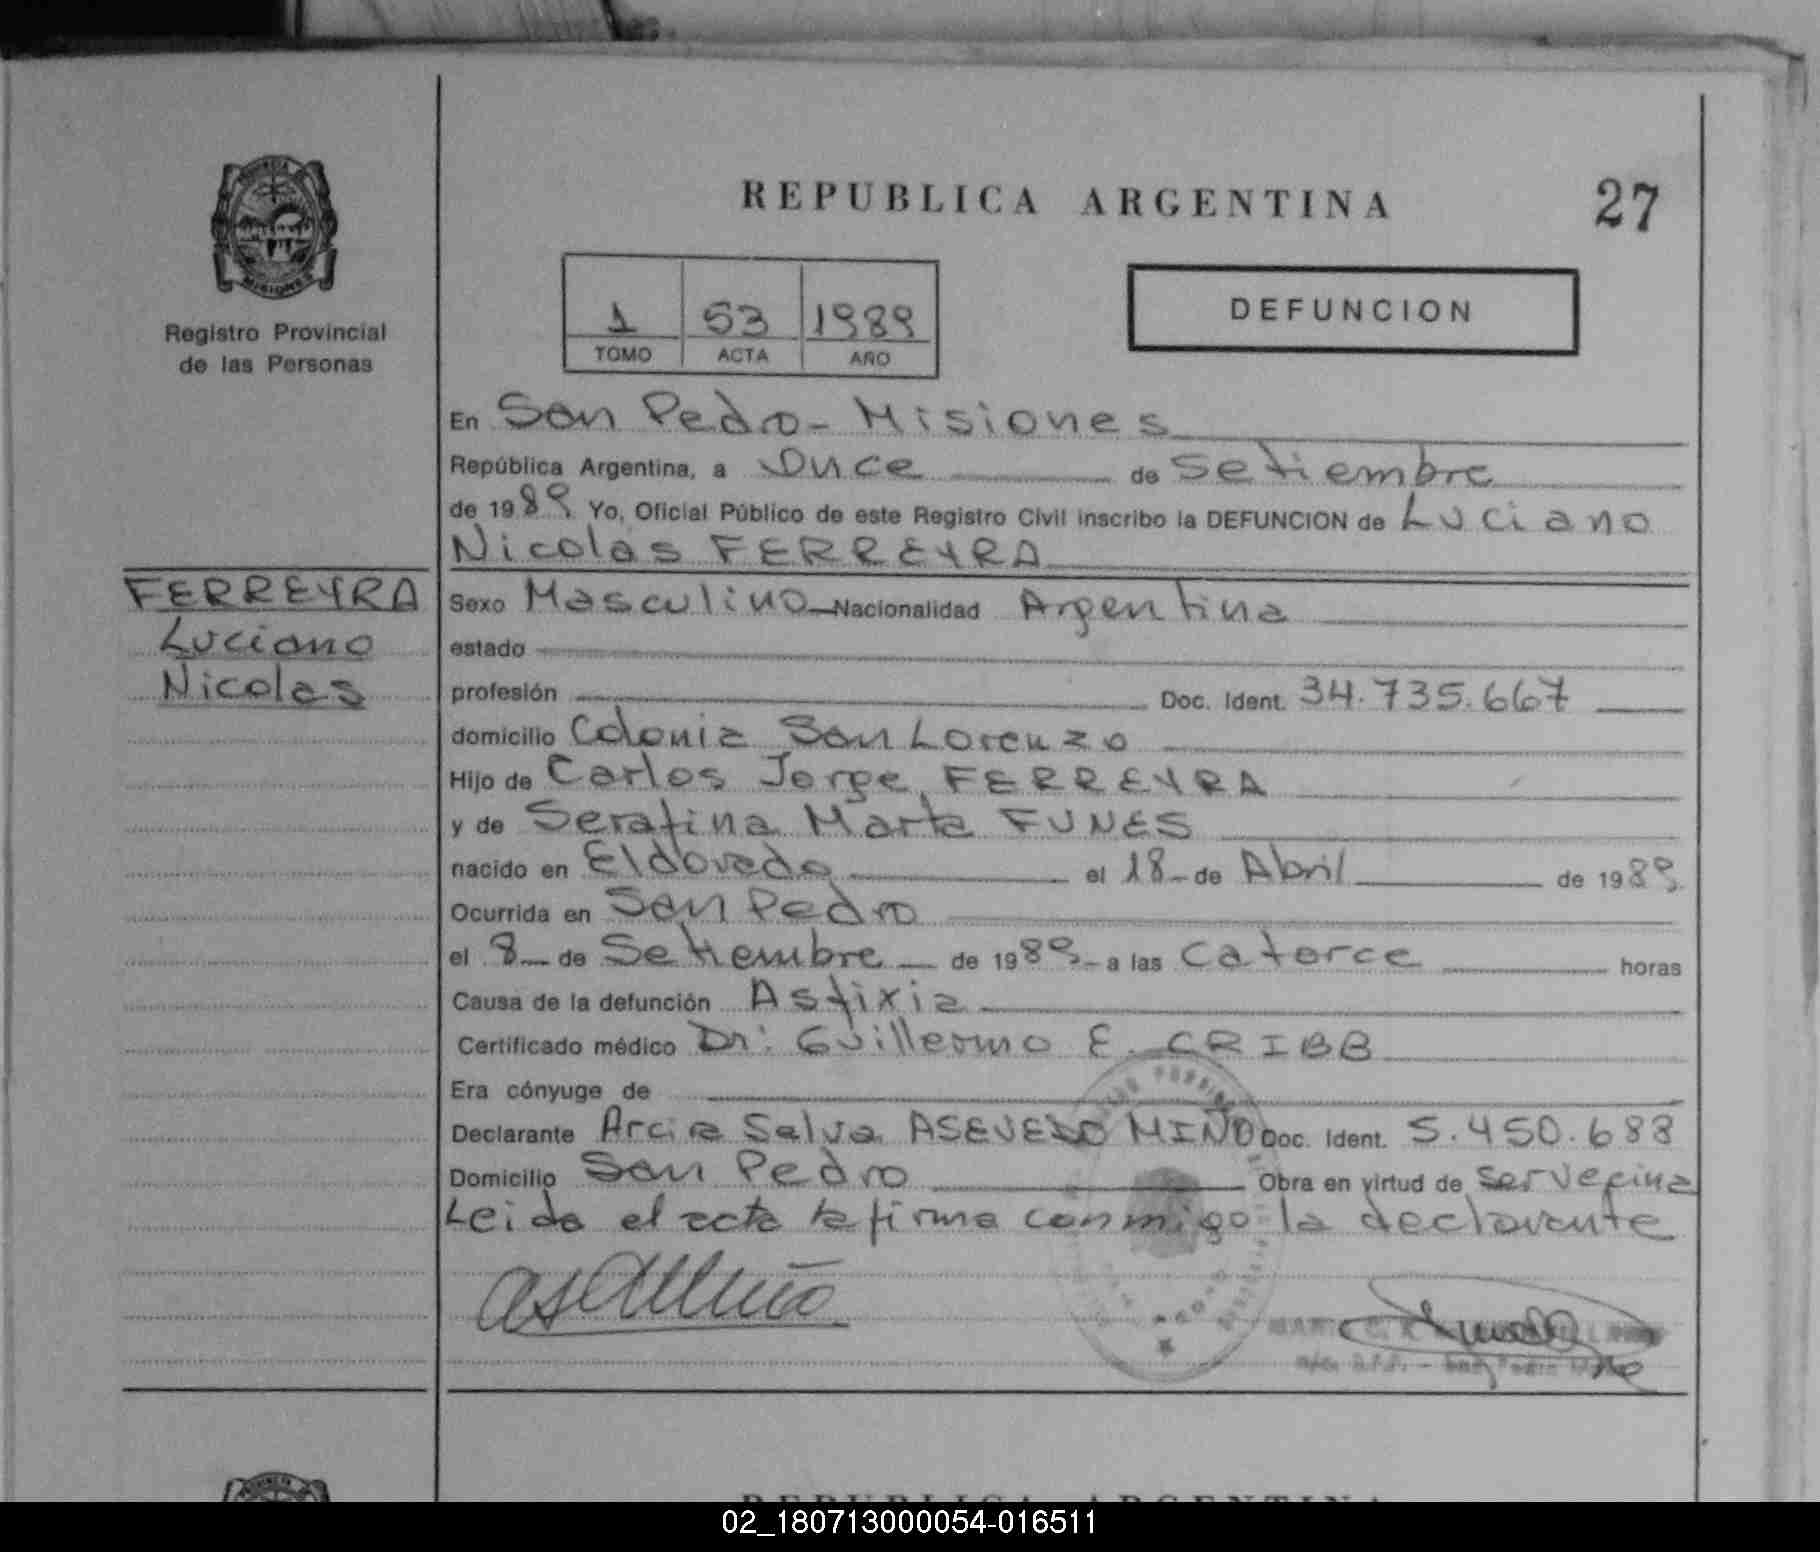 REPUBLICA ARGENTINA
27
MISIONES
Registro Provincial
de las Personas
1 53 1989
TOMO ACTA AÑO
DEFUNCION
En San Pedro - Misiones
República Argentina, a Once de Setiembre
de 1989 Yo, Oficial Público de este Registro Civil inscribo la DEFUNCION de Luciano
Nicolas FERREYRA
FERREYRA
Luciano
Nicolas
Sexo Masculino Nacionalidad Argentina
estado
profesión Doc. Ident. 34.735.667
domicilio Colonia San Lorenzo
Hijo de Carlos Jorge FERREYRA
y de Serafina Marta FUNES
nacido en Eldorado el 18 de Abril de 1989
Ocurrida en San Pedro
el 8 de Setiembre de 1989 a las Catorce horas
Causa de la defunción Asfixia
Certificado médico Dr: Guillermo E. CRIBB
Era cónyuge de
Declarante Arcira Salva ASEVEDO MIÑO Doc. Ident. 5.450.688
Domicilio San Pedro Obra en virtud de ser vecina
Leida el acta la firma conmigo la declarante
REPUBLICA ARGENTINA
02_180713000054-016511